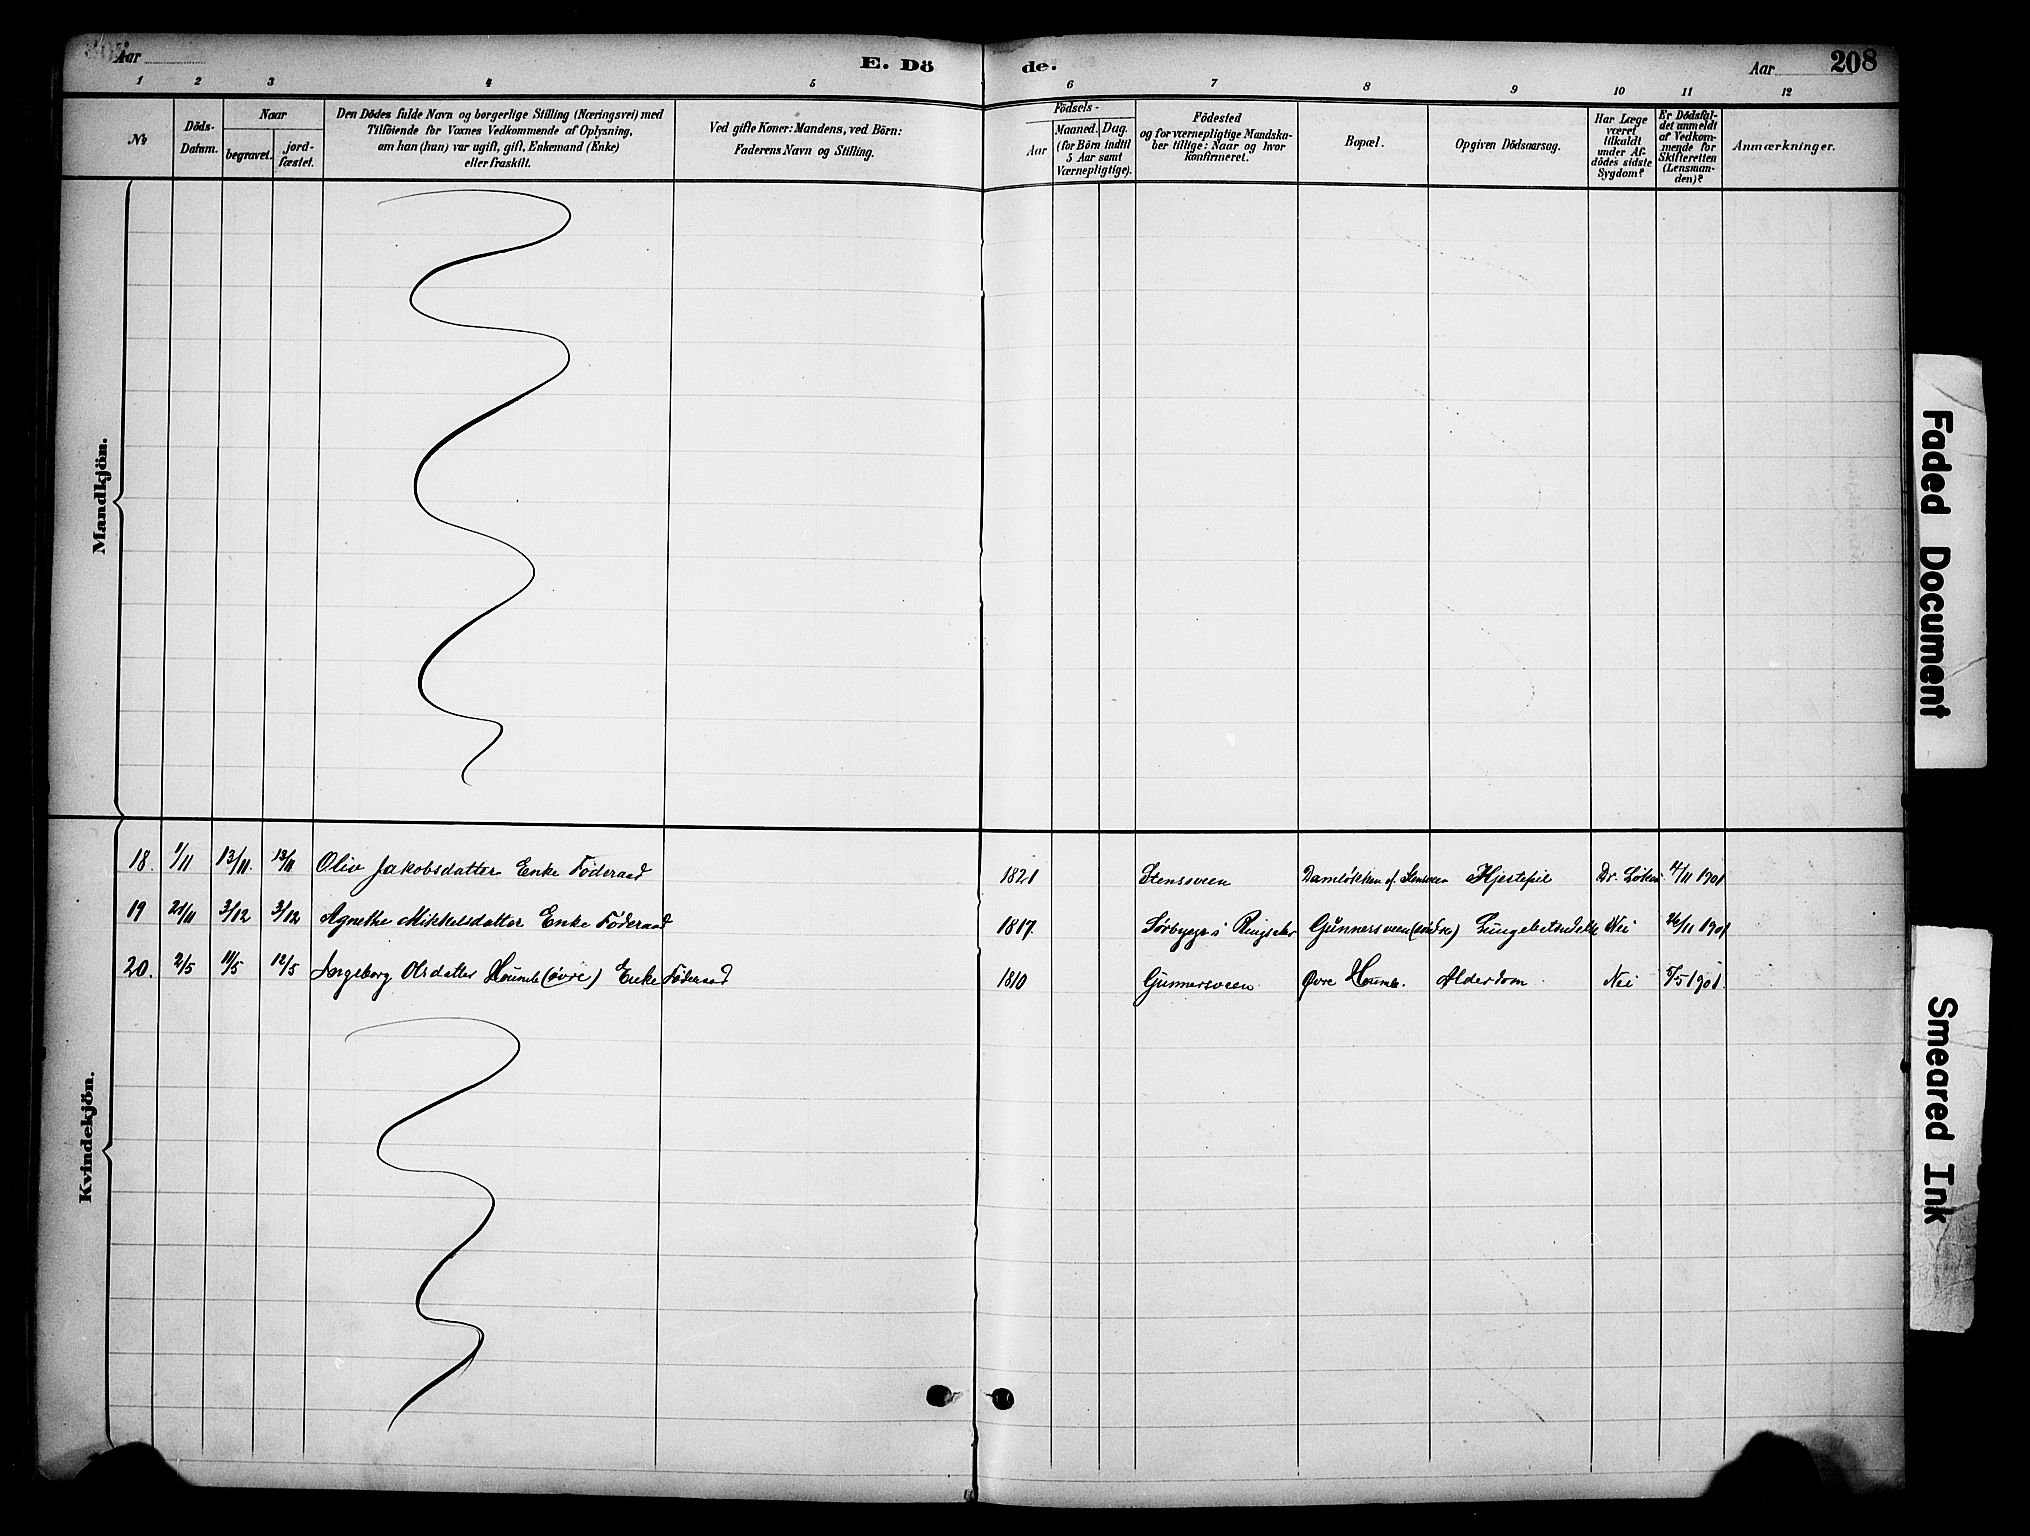 Aar
E. Dö
de.
Aar
208
1 2 3 4 5 6 7 8 9 10 11 12
No
Döds-
Datum.
Naar
begravet.
jord-
fæstet.
Den Dödes fulde Navn og borgerlige Stilling (Næringsvei) med
Tilföiende for Voxnes Vedkommende af Oplysning,
om han (hun) var ugift, gift, Enkemand (Enke)
eller fraskilt.
Ved gifte Koner: Mandens, ved Börn:
Faderens Navn og Stilling.
Födsels-
Aar
Maaned. Dag.
(for Börn indtil
5 Aar samt
Værnepligtige).
Födested
og for værnepligtige Mandska-
ber tillige: Naar og hvor
konfirmeret.
Bopæl.
Opgiven Dödsaarsag.
Har Læge
været
tilkaldt
under Af-
dödes sidste
Sygdom?
Er Dödsfal-
det anmeldt
af Vedkom-
mende for
Skifteretten
(Lensman-
den)?
Anmærkninger.
Mandkjön.
Kvindekjön.
18. 1/11 13/11. 13/11 Oliv Jakobsdatter Enke Föderaad 1821 Stenssveen Damløkken af Stensveen Hjertefeil Dr. Løken 4/11 1901
19 21/11 3/12 3/12 Agnethe Mikkelsdatter Enke Föderaad 1817 i Ringsaker Gunnersveen (søndre) Lungebetændelse Nei 26/11 1901
20. 2/5 11/5 12/5 Ingeborg Olsdatter Houmb (øvre) Enke Föderaad 1810 Gunnersveen Øvre Houmb. Alderdom. Nei 5/5 1901.
Faded Document
Smeared Ink